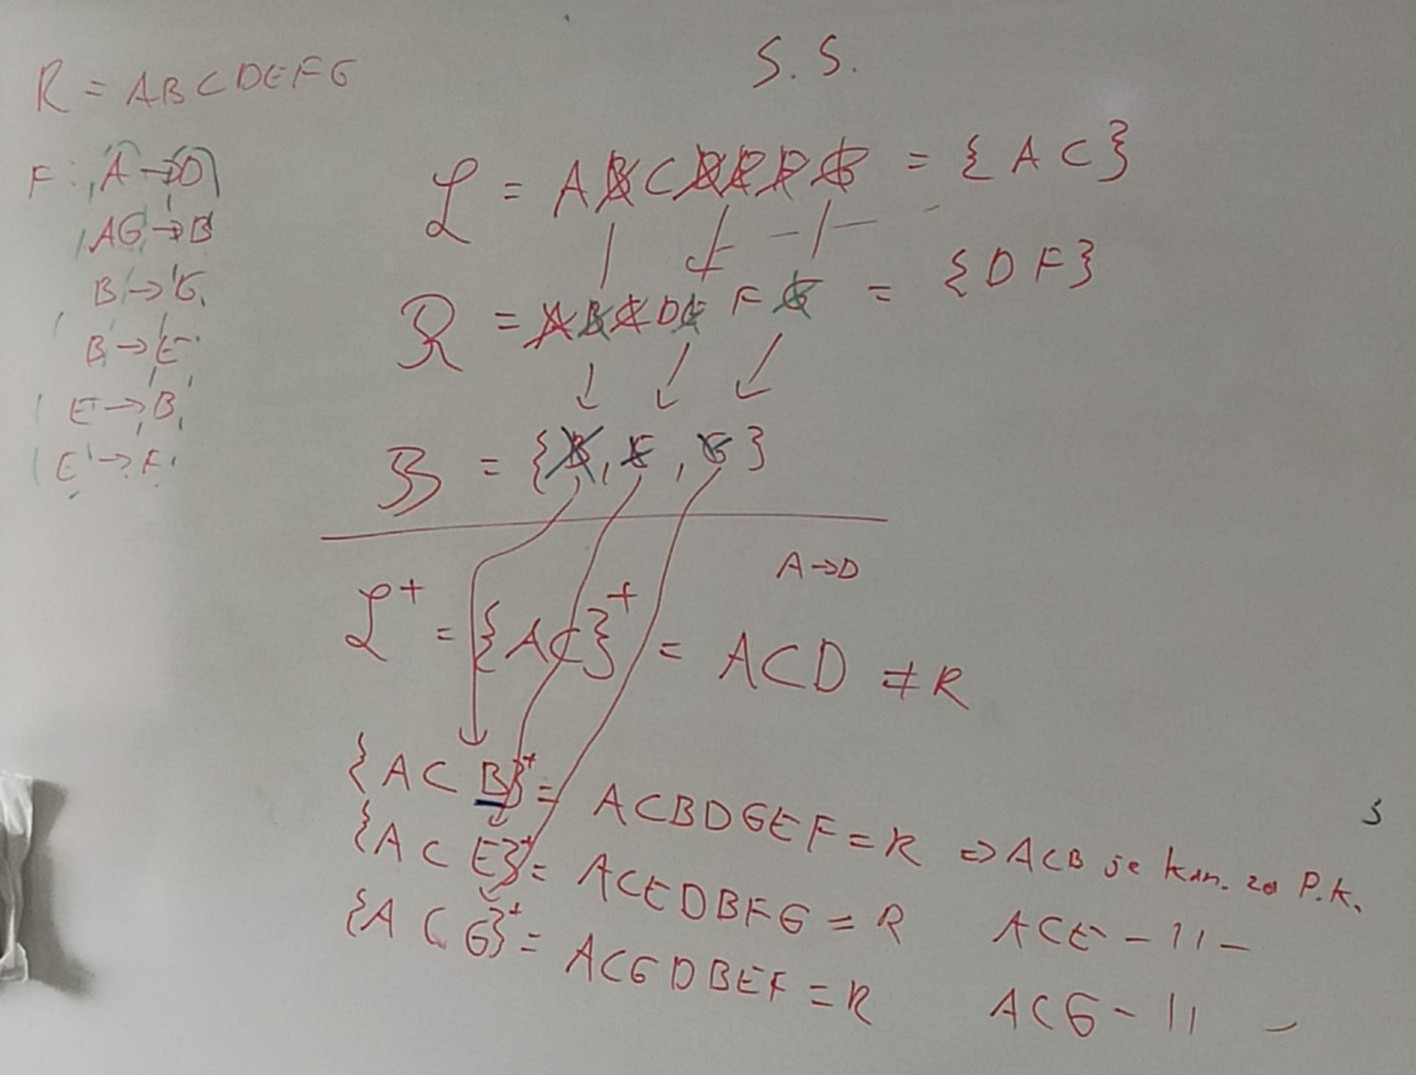 R = ABCDEFG
S. S.
F: A → D
AG → B
B → G
B → E
E → B
E → F
L = ABCDEFG = { A C }
R = ABCDEFG = { D F }
B = { B, E, G }
A → D
L⁺ = { AC }⁺ = ACD ≠ R
{ A C B }⁺ = ACBDGEF = R ⇒ ACB je kan. za P.K.
{ A C E }⁺ = ACEDBFG = R ACE - 11 -
{ A C G }⁺ = ACGDBEF = R ACG - 11 -